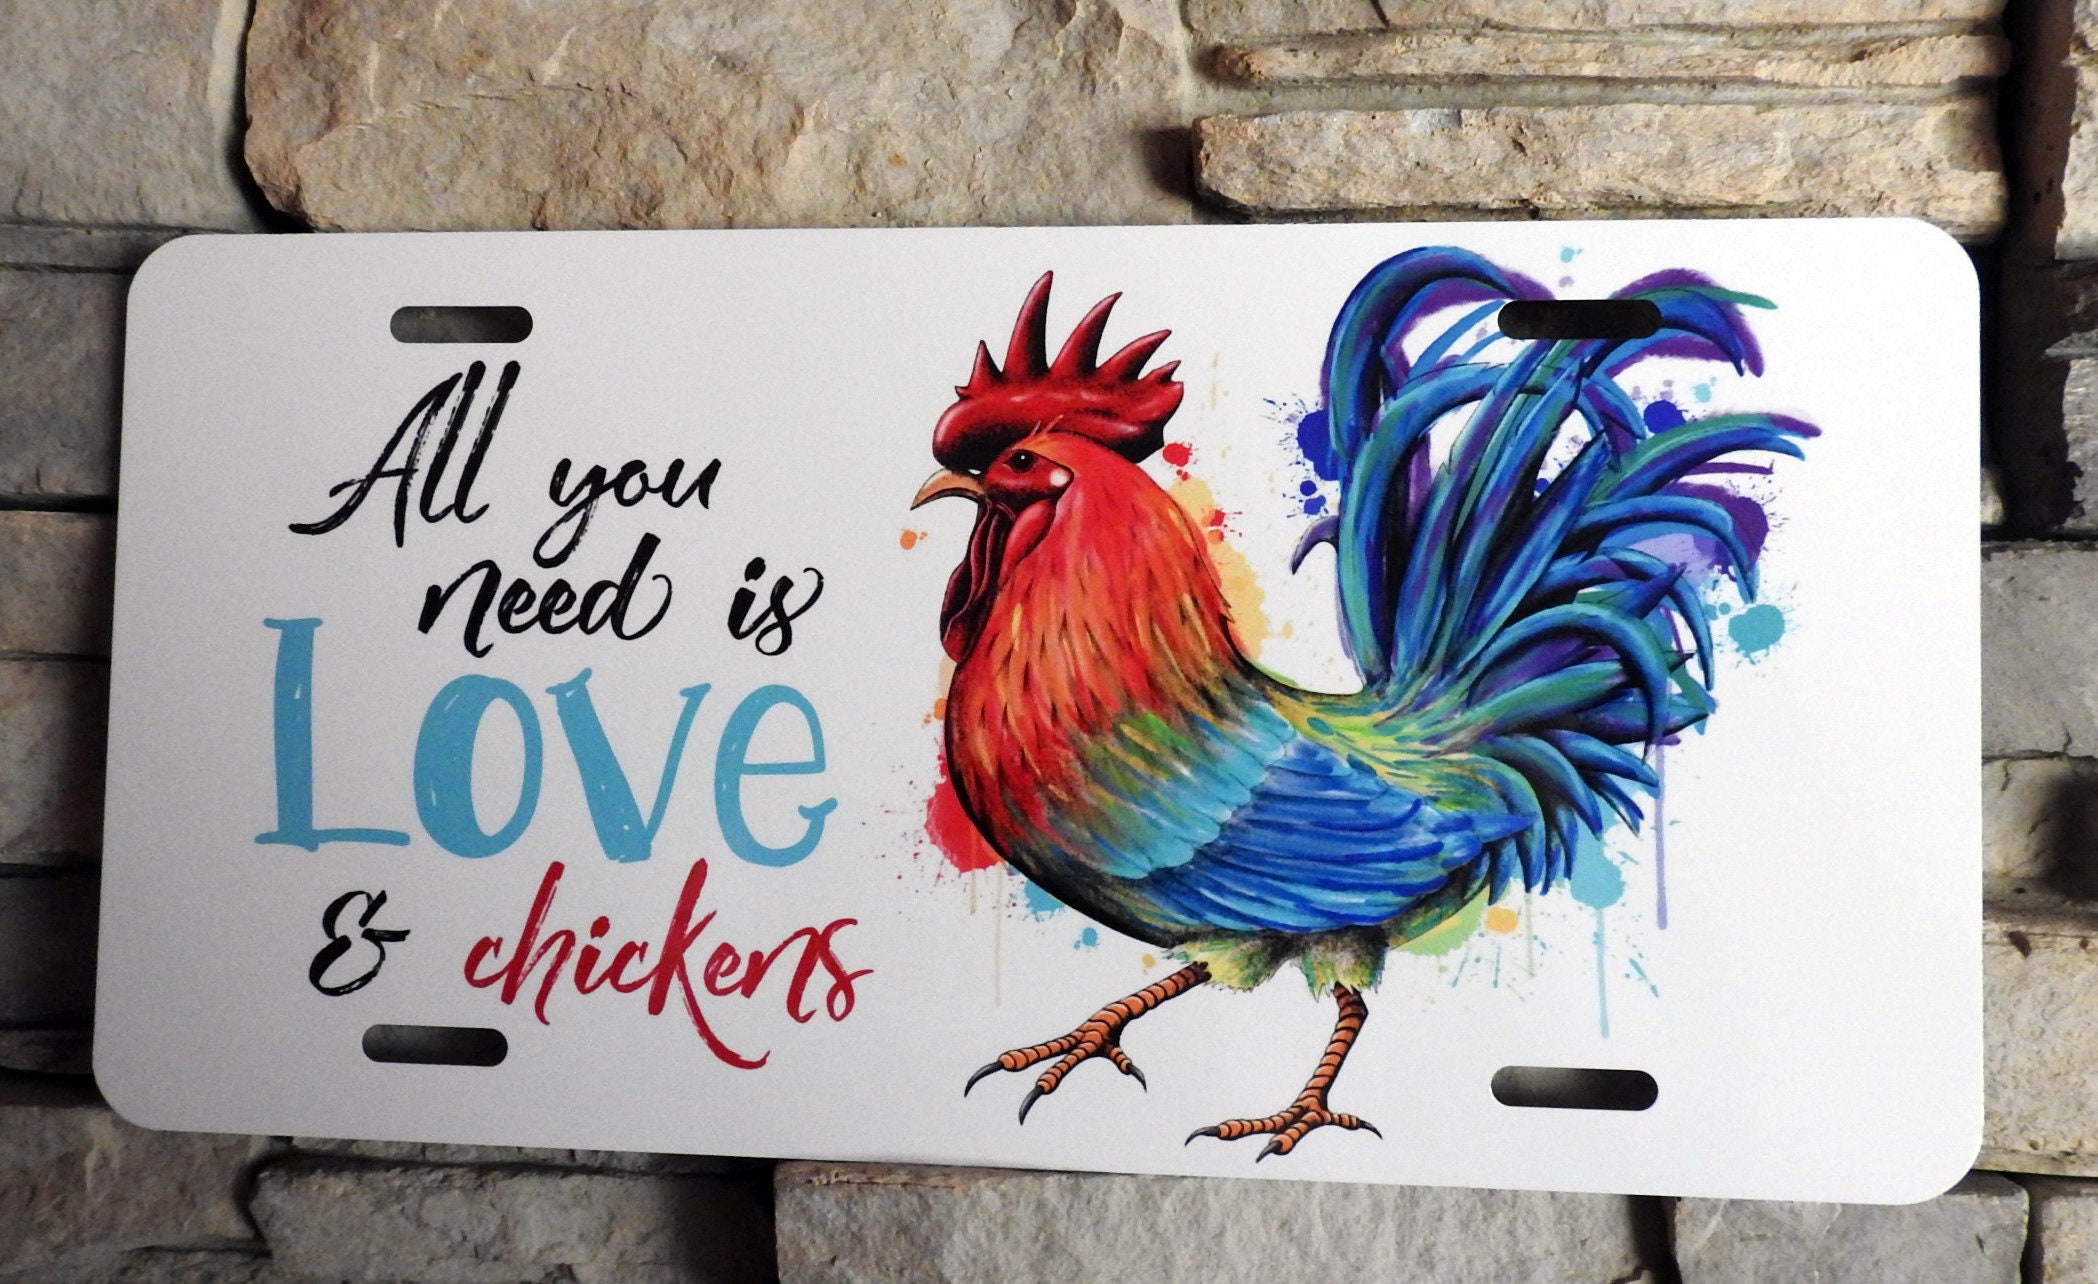 All you
need is
Love
& chickens